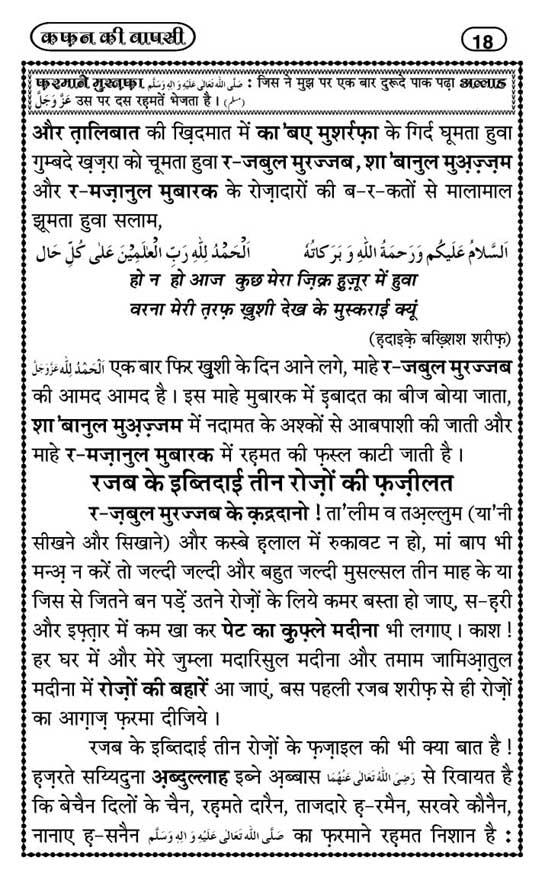 कफ़न की वापसी
18
फ़रमाने मुस्तफ़ा صَلَّى اللهُ تَعَالٰى عَلَيْهِ وَاٰلِهٖ وَسَلَّم : जिस ने मुझ पर एक बार दुरूदे पाक पढ़ा अल्लाह
عَزَّوَجَلَّ उस पर दस रहमतें भेजता है । (مسلم)
और तालिबात की ख़िदमात में का'बए मुशर्रफ़ा के गिर्द घूमता हुवा
गुम्बदे ख़ज़रा को चूमता हुवा र-जबुल मुरज्जब, शा'बानुल मुअ़ज़्ज़म
और र-मज़ानुल मुबारक के रोज़ादारों की ब-र-कतों से मालामाल
झूमता हुवा सलाम,
اَلسَّلَامُ عَلَيْكُم وَرَحْمَةُ اللهِ وَ بَرَكَاتُهٗ اَلْحَمْدُ لِلّٰهِ رَبِّ الْعٰلَمِيْنَ عَلٰى كُلِّ حَال
हो न हो आज कुछ मेरा ज़िक्र हुज़ूर में हुवा
वरना मेरी त़रफ़ ख़ुशी देख के मुस्कराई क्यूं
(ह़दाइके़ बख़्शिश शरीफ़)
اَلْحَمْدُ لِلّٰه عَزَّوَجَلَّ एक बार फिर खुशी के दिन आने लगे, माहे र-जबुल मुरज्जब
की आमद आमद है । इस माहे मुबारक में इ़बादत का बीज बोया जाता,
शा'बानुल मुअ़ज़्ज़म में नदामत के अश्कों से आबपाशी की जाती और
माहे र-मज़ानुल मुबारक में रहमत की फ़स्ल काटी जाती है ।
रजब के इब्तिदाई तीन रोज़ों की फ़ज़ीलत
र-ज़बुल मुरज्जब के क़द्रदानो ! ता'लीम व तअ़ल्लुम (या'नी
सीखने और सिखाने) और कस्बे ह़लाल में रुकावट न हो, मां बाप भी
मन्अ़ न करें तो जल्दी जल्दी और बहुत जल्दी मुसल्सल तीन माह के या
जिस से जितने बन पड़ें उतने रोज़ों के लिये कमर बस्ता हो जाए, स-ह़री
और इफ़्तार में कम खा कर पेट का कुफ़्ले मदीना भी लगाए । काश !
हर घर में और मेरे जुम्ला मदारिसुल मदीना और तमाम जामिआ़तुल
मदीना में रोज़ों की बहारें आ जाएं, बस पहली रजब शरीफ़ से ही रोज़ों
का आग़ाज़ फ़रमा दीजिये ।
रजब के इब्तिदाई तीन रोज़ों के फ़ज़ाइल की भी क्या बात है !
ह़ज़रते सय्यिदुना अ़ब्दुल्लाह इब्ने अ़ब्बास رَضِيَ اللهُ تَعَالٰى عَنْهُمَا से रिवायत है
कि बेचैन दिलों के चैन, रहमते दारैन, ताजदारे ह़-रमैन, सरवरे कौनैन,
नानाए ह़-सनैन صَلَّى اللهُ تَعَالٰى عَلَيْهِ وَاٰلِهٖ وَسَلَّم का फ़रमाने रहमत निशान है :